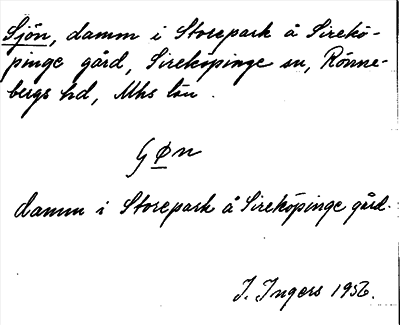 Sjön, damm i Storepark å Sirekö-
pinge gård, Sireköpinge sn, Rönne-
bergs hd, Mhs län.
damm i Storepark å Sireköpinge gård.
I. Ingers 1956.